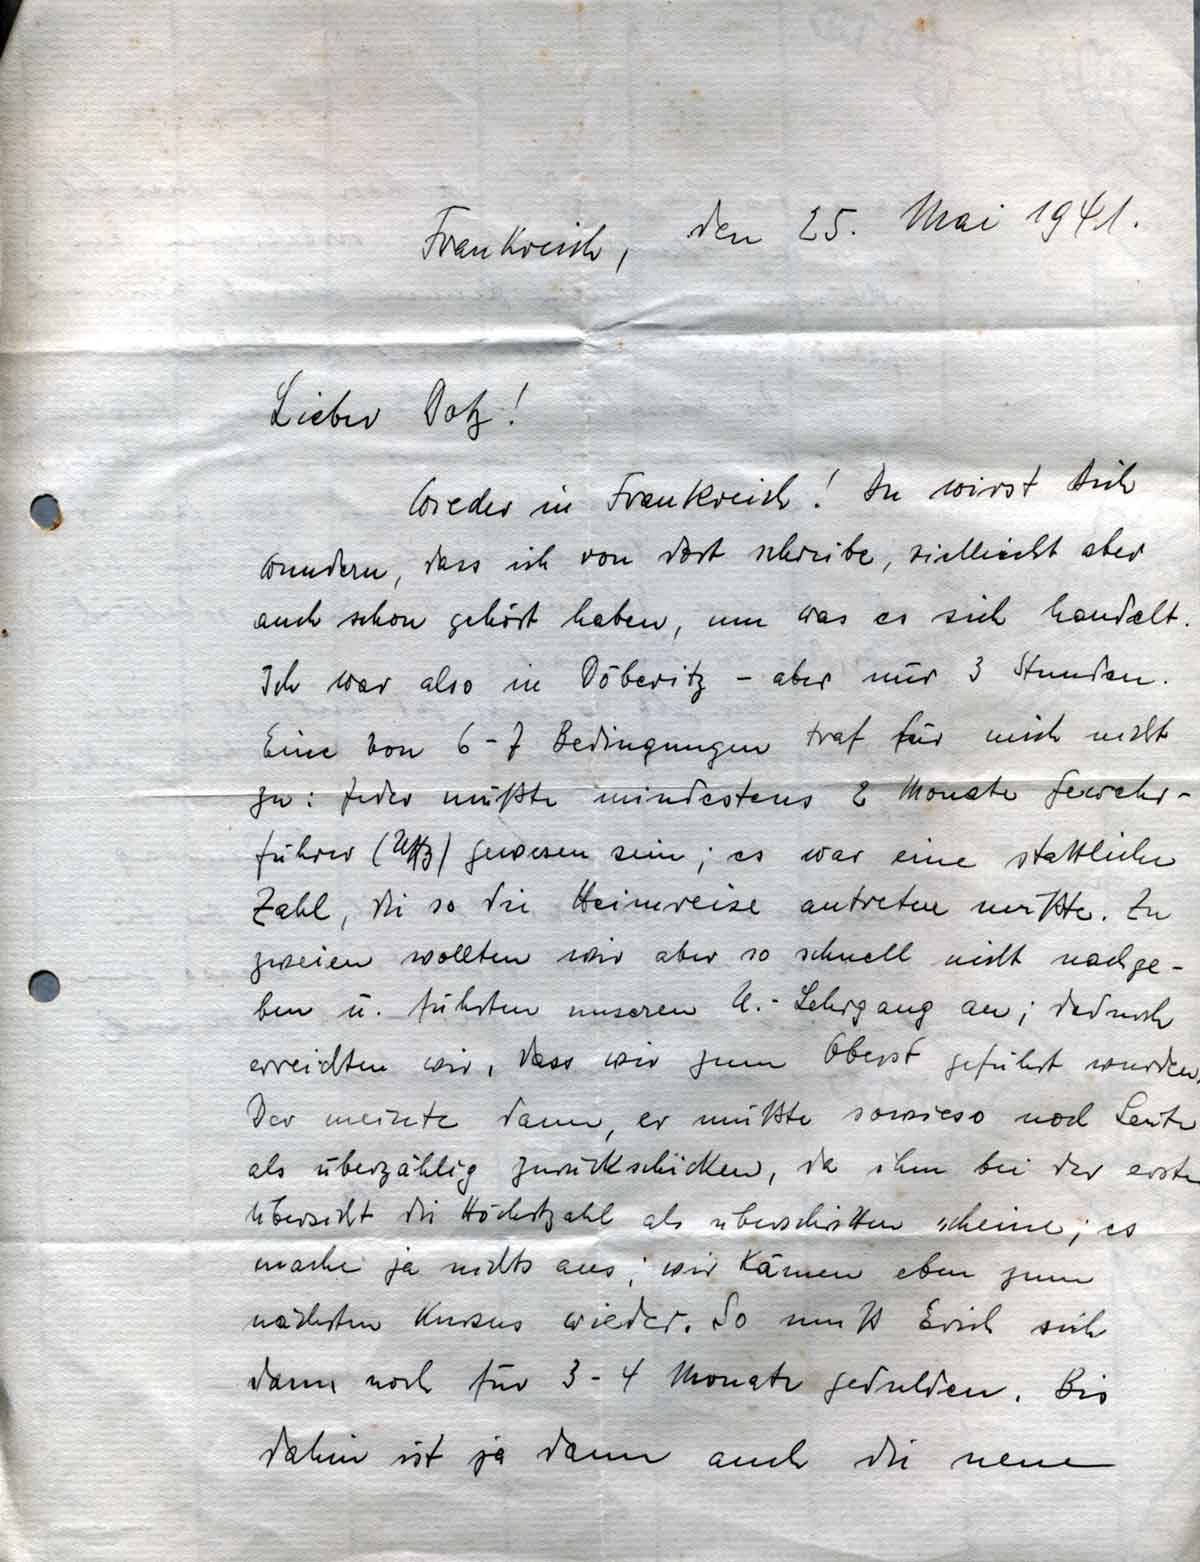 Frankreich, den 25. Mai 1941.
Lieber Dotz!
Wieder in Frankreich! Du wirst Dich
wundern, dass ich von dort schreibe, vielleicht aber
auch schon gehört haben, um was es sich handelt.
Ich war also in Döberitz - aber nur 3 Stunden.
Eine von 6-7 Bedingungen traf für mich nicht
zu: Jeder müßte mindestens 2 Monate Gewehr-
führer (Uffz) gewesen sein; es war eine stattliche
Zahl, die so die Heimreise antreten mußte. Zu
zweien wollten wir aber so schnell nicht nachge-
ben u. führten unseren U.-Lehrgang an; dadurch
erreichten wir, dass wir zum Oberst geführt wurden.
Der meinte dann, er müßte sowieso noch Leute
als überzählig zurückschicken, da ihm bei der ersten
Übersicht die Höchstzahl als überschritten scheine; es
mache ja nichts aus; wir kämen eben zum
nächsten Kursus wieder. So muß Erich sich
dann noch für 3-4 Monate gedulden. Bis
dahin ist ja dann auch die neue